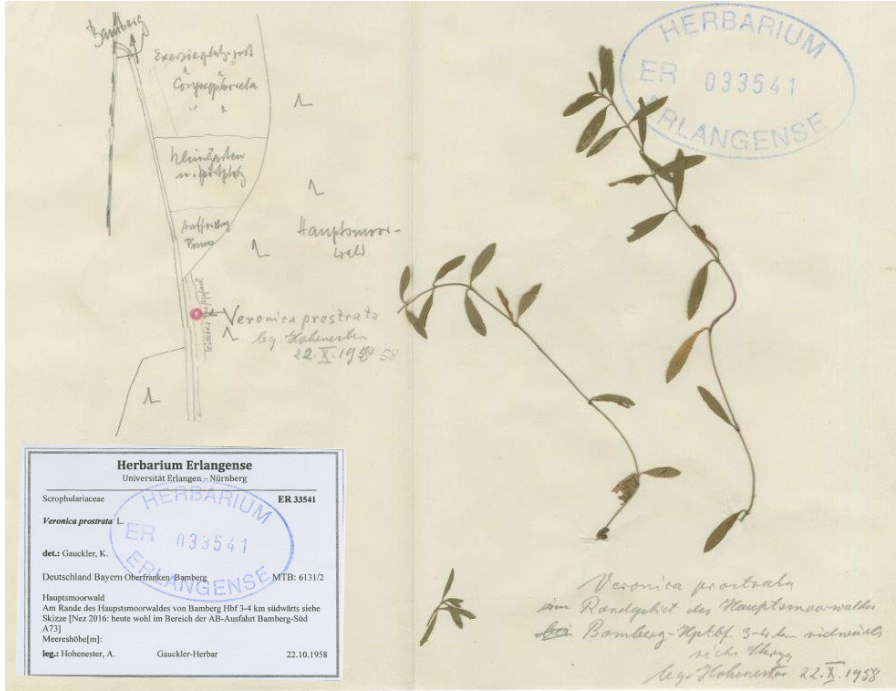 Bamberg
Exerzierplatz
Corynephoreta
Kleingärten
u. Sportplatz
Aufforstung
Pinus
Hauptsmoor-
wald
Veronica prostrata
leg. Hohenester
22. X. 1958 58
HERBARIUM
ER 033541
ERLANGENSE
Herbarium Erlangense
Universität Erlangen - Nürnberg
Scrophulariaceae ER 33541
Veronica prostrata L.
det.: Gauckler, K.
Deutschland Bayern Oberfranken Bamberg MTB: 6131/2
Hauptsmoorwald
Am Rande des Haupstmoorwaldes von Bamberg Hbf 3-4 km südwärts siehe
Skizze [Nez 2016: heute wohl im Bereich der AB-Ausfahrt Bamberg-Süd
A73]
Meereshöhe[m]:
leg.: Hohenester, A. Gauckler-Herbar 22.10.1958
HERBARIUM
ER 033541
ERLANGENSE
Veronica prostrata
im Randgebiet des Hauptsmoorwaldes
bei Bamberg-Hptbf. 3-4 km südwärts
siehe Skizze
leg. Hohenester 22. X. 1958